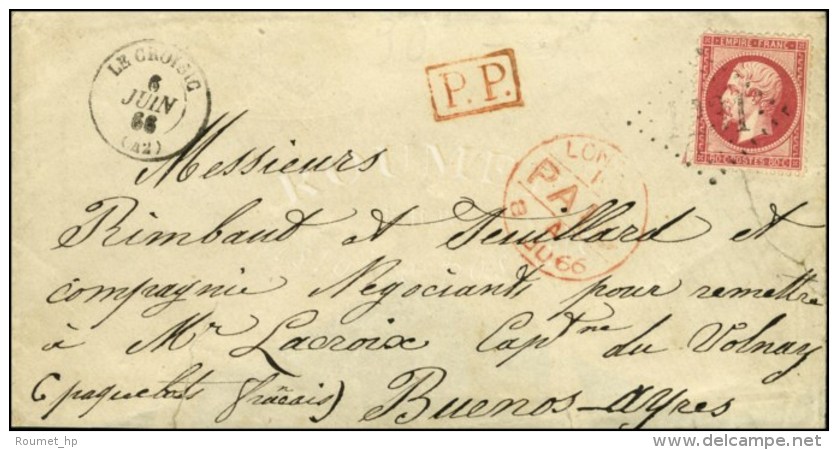 LE CROISIC
6
JUIN
66
(42)
P.P.
EMPIRE FRANC
80 C POSTES 80 C
LON
PAI
8 JU 66
Messieurs
Rimbaut et Feuillard et
compagnie Negociants pour remettre
à Mr Lacroix Captne du Volnay
(paquebots français) Buenos-ayres
Roumet_hp
www.delcampe.net